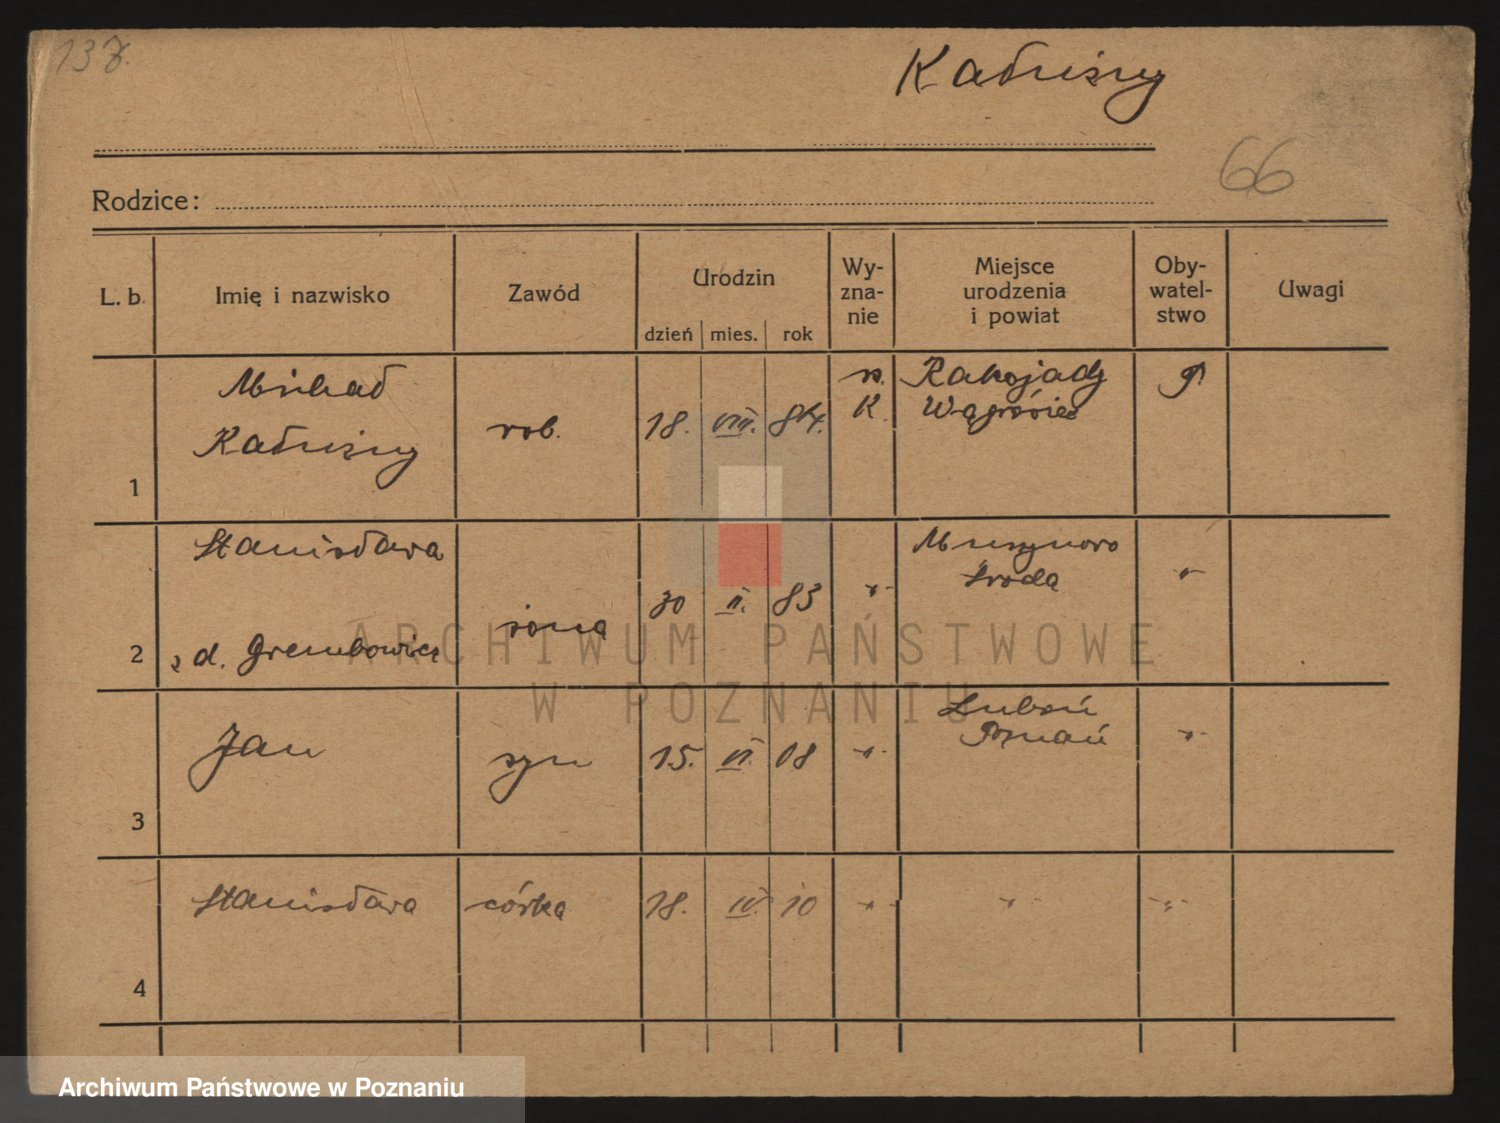 137.
Kałużny
66
Rodzice:
L. b. Imię i nazwisko Zawód Urodzin Wy-zna-nie Miejsce urodzenia i powiat Oby-watel-stwo Uwagi
dzień mies. rok
Michał rz. Rakojady P
Kałużny rob. 18. VIII. 84. K. Wągrówiec
1
Stanisława Środa
2 z d. Grembowicz żona 30 83 -"-
ARCHIWUM PAŃSTWOWE
W POZNANIU
Luboń
Jan syn 15. VI. 08 -"- Poznań -"-
3
Stanisława córka 18. IV. 10 -"- -"- -"-
4
Archiwum Państwowe w Poznaniu